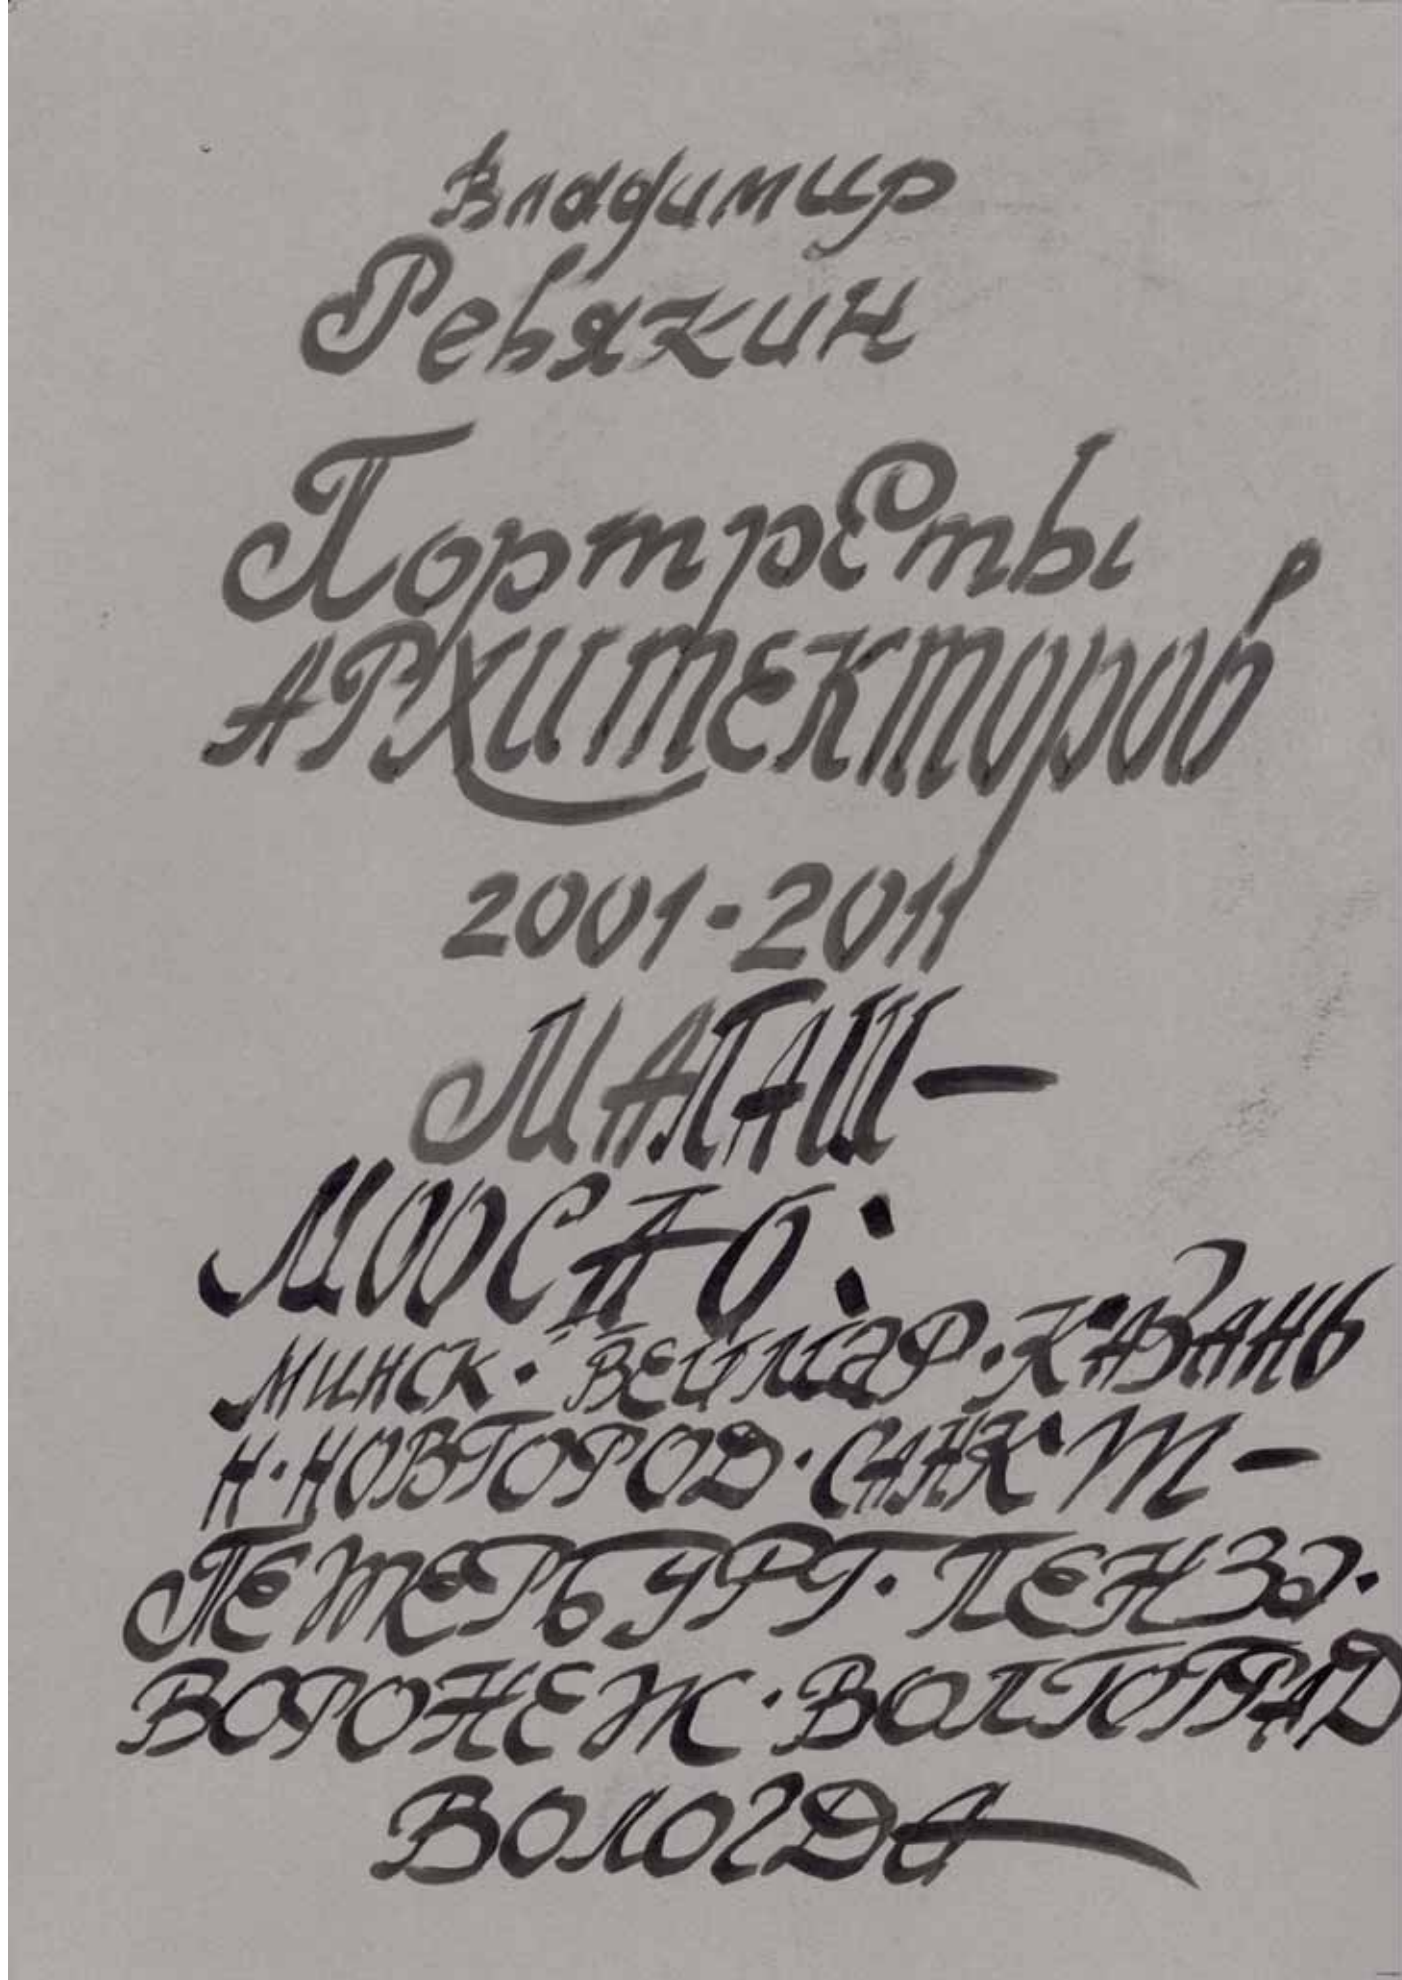 Владимир
Ревякин
Портреты
Архитекторов
2001-2011
МАГАШ-
МООСАО:
МИНСК · ВЕЙМАР · КАЗАНЬ
Н·НОВГОРОД · САНКТ-
ПЕТЕРБУРГ · ПЕНЗА ·
ВОРОНЕЖ · ВОЛГОГРАД
ВОЛОГДА